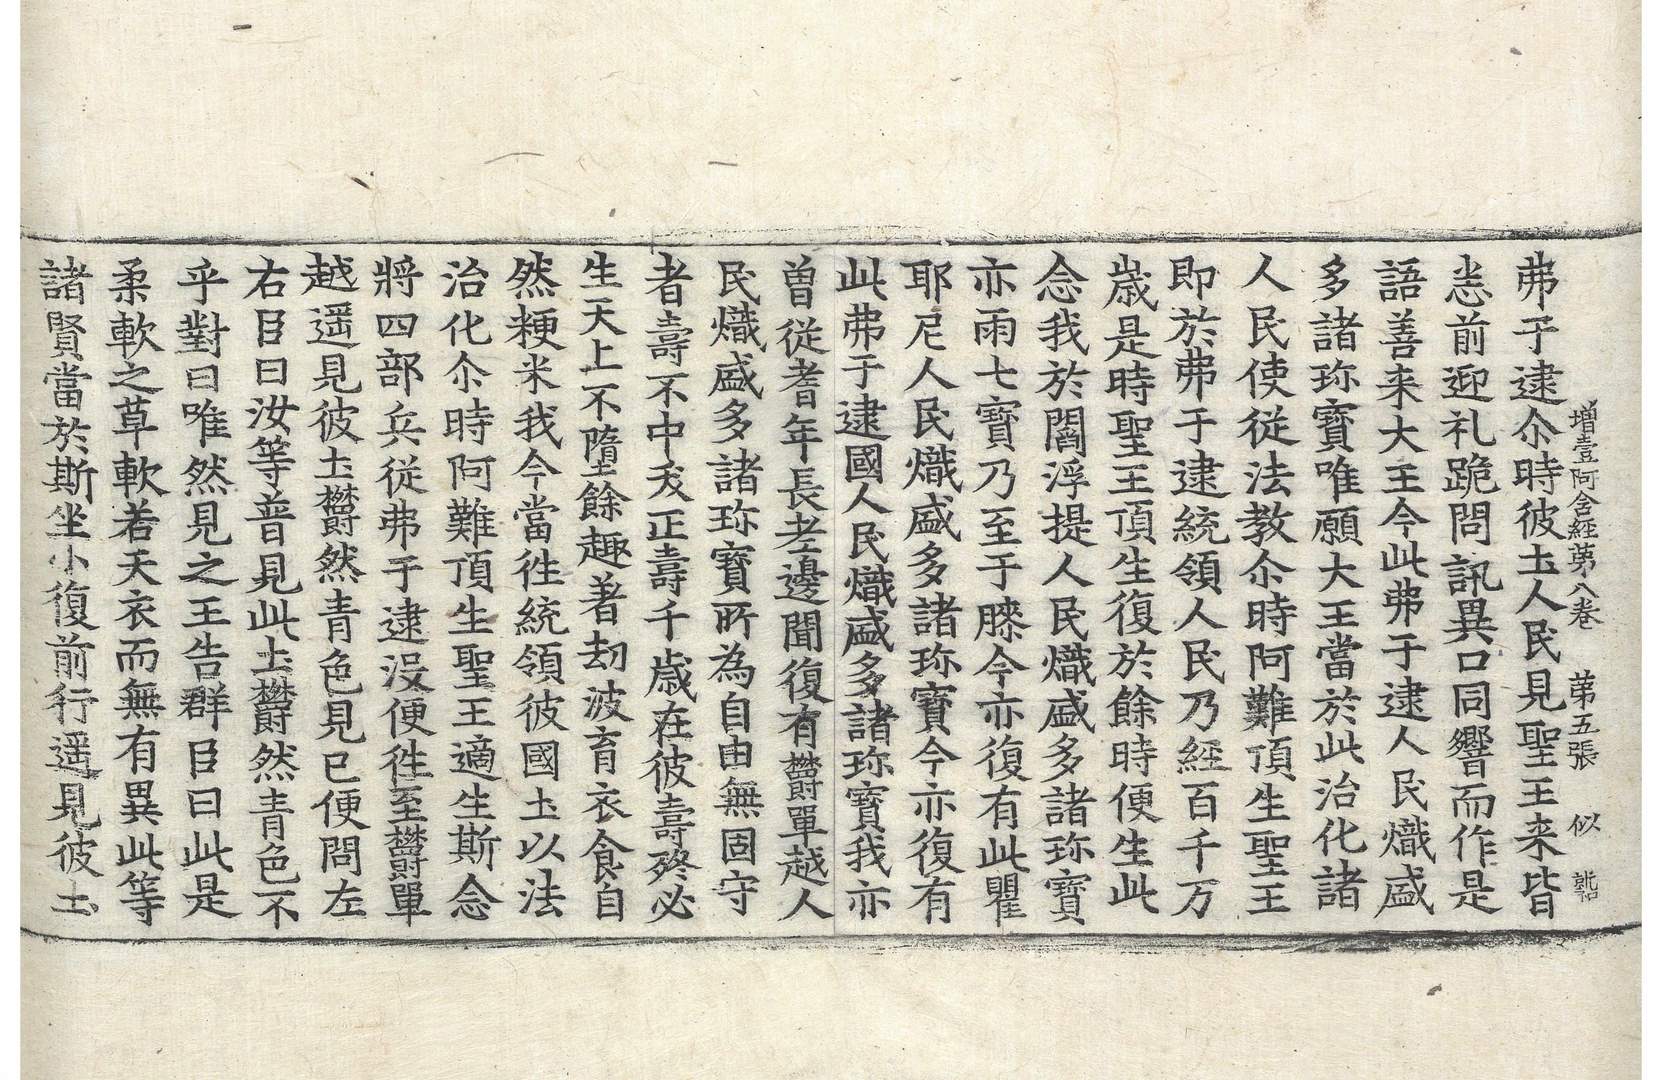 增壹阿含經苐八卷　苐五張　似
弗于逮尒時彼圡人民見聖王来皆
悉前迎礼跪問訊異口同響而作是
語善来大王今此弗于逮人民熾盛
多諸珎寶唯願大王當於此治化諸
人民使從法教尒時阿難頂生聖王
即於弗于逮統領人民乃經百千万
歳是時聖王頂生復於餘時便生此
念我於閻浮提人民熾盛多諸珎寶
亦雨七寶乃至于膝今亦復有此瞿
耶尼人民熾盛多諸珎寶今亦復有
此弗于逮國人民熾盛多諸珎寶我亦
曽從耆年長老邊聞復有欝單越人
民熾盛多諸珎寶所為自由無固守
者壽不中夭正壽千歳在彼壽終必
生天上不墮餘趣著劫波育衣食自
然粳米我今當往統領彼國圡以法
治化尒時阿難頂生聖王適生斯念
將四部兵從弗于逮没便往至欝單
越遥見彼圡欝然青色見已便問左
右臣曰汝等普見此圡欝然青色不
乎對曰唯然見之王告群臣曰此是
柔軟之草軟若天衣而無有異此等
諸賢當於斯坐小復前行遥見彼圡